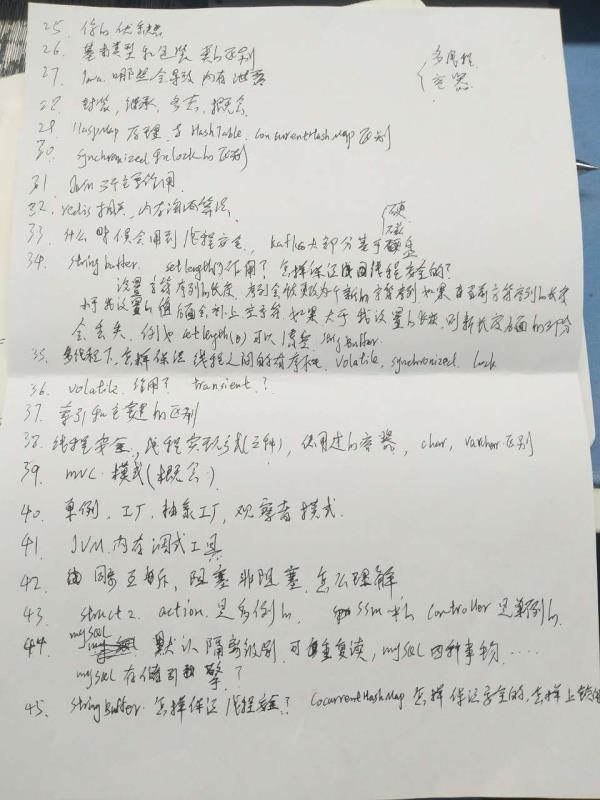 25. 你的优缺点
26. 基本类型和包装类的区别
27. Java 哪些会导致内存泄露
多线程
容器
28. 封装, 继承, 多态, 概念
29. HashMap 原理 与 HashTable. ConcurrentHashMap 区别
30. synchronized 和 lock 的区别
31. JVM 三个主要作用.
32. redis 内存淘汰算法.
33. 什么时候会用到线程安全, kafka大部分基于硬盘
硬
磁
34. stringbuffer. setlength()作用? 怎样保证线程安全的?
设置字符序列的长度, 序列会被更改为个新的字符序列 如果 当前字符序列的长度
小于我设置的值后面会补上空字符. 如果大于我设置的长度, 则新长度后面的部分
会丢失, 例如 setlength(0) 可以清空 stringBuffer.
35. 多线程下, 怎样保证 线程之间的有序性. Volatile, synchronized. lock
36. volatile. 作用? transient.?
37. 索引和主键的区别
38. 线程安全, 线程实现方式(三种), 使用过的容器, char, varchar 区别
39. MVC. 模式(概念.)
40. 单例, 工厂, 抽象工厂, 观察者模式.
41. JVM. 内存调式工具
42. 同步 互斥, 阻塞 非阻塞, 怎么理解
43. struct2. action. 是多例的. ssm 中的 controller 是单例的.
44. mysql 默认隔离级别. 可重复读, mysql 四种事物 .....
mysql 存储引擎?
45. StringBuffer. 怎样保证线程安全? CocurrentHashMap 怎样保证安全的, 怎样上锁